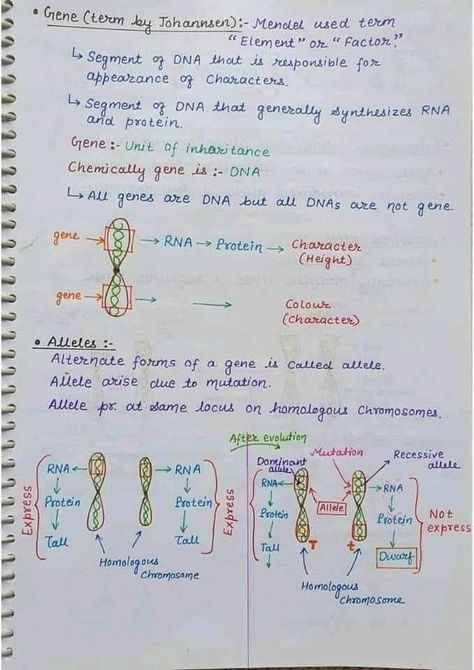 • Gene (term by Johannsen):- Mendel used term
"Element" or "Factor."
↳ Segment of DNA that is responsible for
appearance of characters.
↳ Segment of DNA that generally synthesizes RNA
and protein.
Gene :- Unit of inheritance
Chemically gene is :- DNA
↳ All genes are DNA but all DNAs are not gene.
gene → → RNA → Protein → Character
(Height)
gene → → → Colour
(Character)
• Alleles :-
Alternate forms of a gene is called allele.
Allele arise due to mutation.
Allele pr. at same locus on homologous chromosomes.
Express
RNA ←
↓
Protein
↓
Tall
→ RNA
↓
Protein
↓
Tall
Express
Homologous
chromosome
After evolution
Dominant
allele
Mutation
Recessive
allele
RNA ←
↓
Protein
↓
Tall
Allele
T
t
→ RNA
↓
Protein
↓
Dwarf
Not
express
Homologous
chromosome